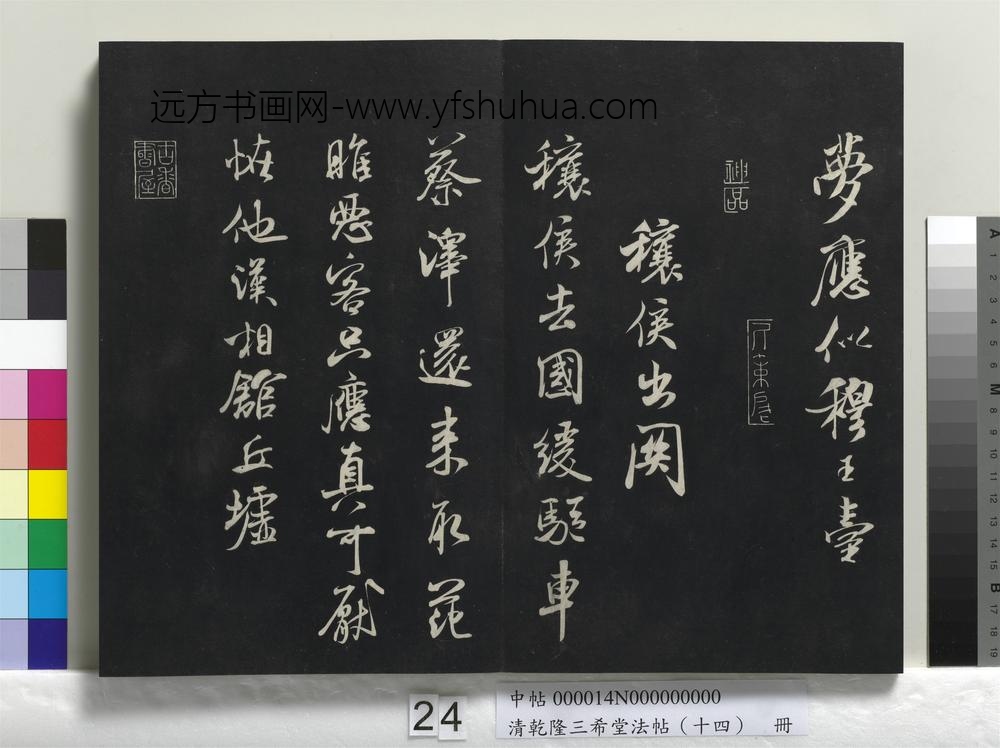 远方书画网-www.yfshuhua.com
夢應似穆王臺
神品
穰侯出関
穰侯去國緩驅車
蔡澤還来取范
睢惡客只應真可厭
恠他漢相館丘墟
24
中帖 000014N000000000
清乾隆三希堂法帖（十四） 冊
A 1 2 3 4 5 6 M 8 9 10 11 12 13 14 15 B 17 18 19